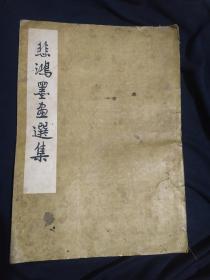 悲鴻墨畫選集